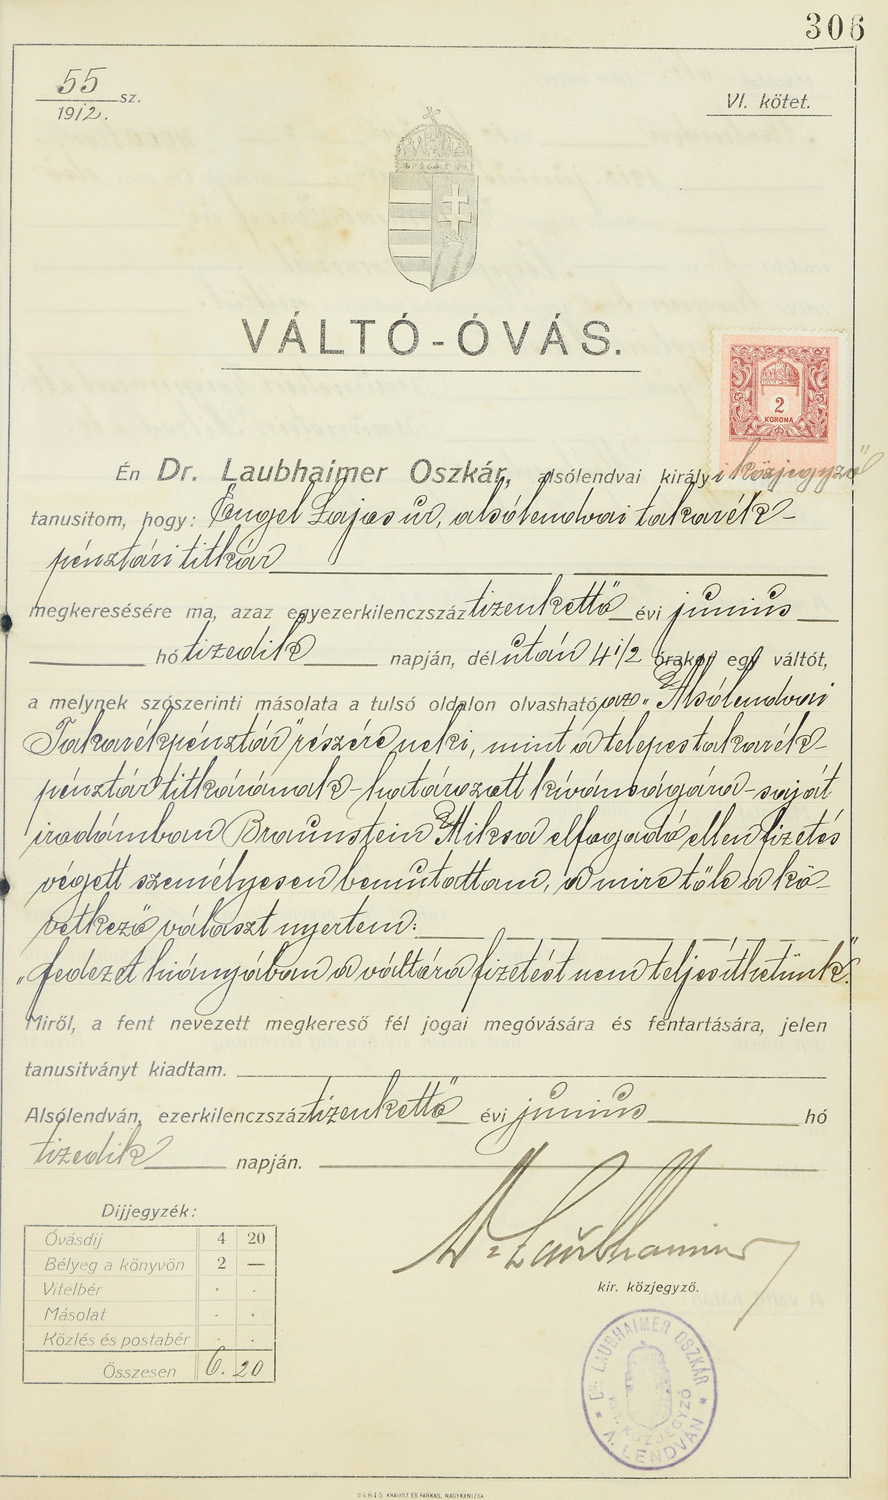 306
55 sz.
1912.
VI. kötet.
VÁLTÓ-ÓVÁS.
2
KORONA
Én Dr. Laubhaimer Oszkár, alsólendvai királyi közjegyző
tanusitom, hogy: Engel Lajos úr, alsólendvai takarék-
pénztári titkár
megkeresésére ma, azaz egyezerkilenczszáz tizenkettő évi junius
hó tizedik napján, dél után 4 1/2 órakor egy váltót,
a melynek szószerinti másolata a tulsó oldalon olvasható az „Alsólendvai
Takarékpénztár" részére neki, mint a telepes takarék-
pénztár titkárának - határozott kivánságára - saját
irodámban Braunstein Miksa elfogadó ellen fizetés
végett személyesen bemutattam, a mire tőle a kö-
vetkező választ nyertem:
„fedezet hiányában a váltóra fizetést nem teljesíthetünk".
Miről, a fent nevezett megkereső fél jogai megóvására és fentartására, jelen
tanusitványt kiadtam.
Alsólendván, ezerkilenczszáz tizenkettő évi junius hó
tizedik napján.
Dijjegyzék:
Óvásdij 4 20
Bélyeg a könyvön 2 —
Vitelbér . .
Másolat . .
Közlés és postabér . .
Összesen 6. 20
Dr Laubhaimer
kir. közjegyző.
DR. LAUBHAIMER OSZKÁR
KIR. KÖZJEGYZŐ
* A. LENDVÁN *
24845 KRAUSZ ÉS FARKAS, NAGYKANIZSA